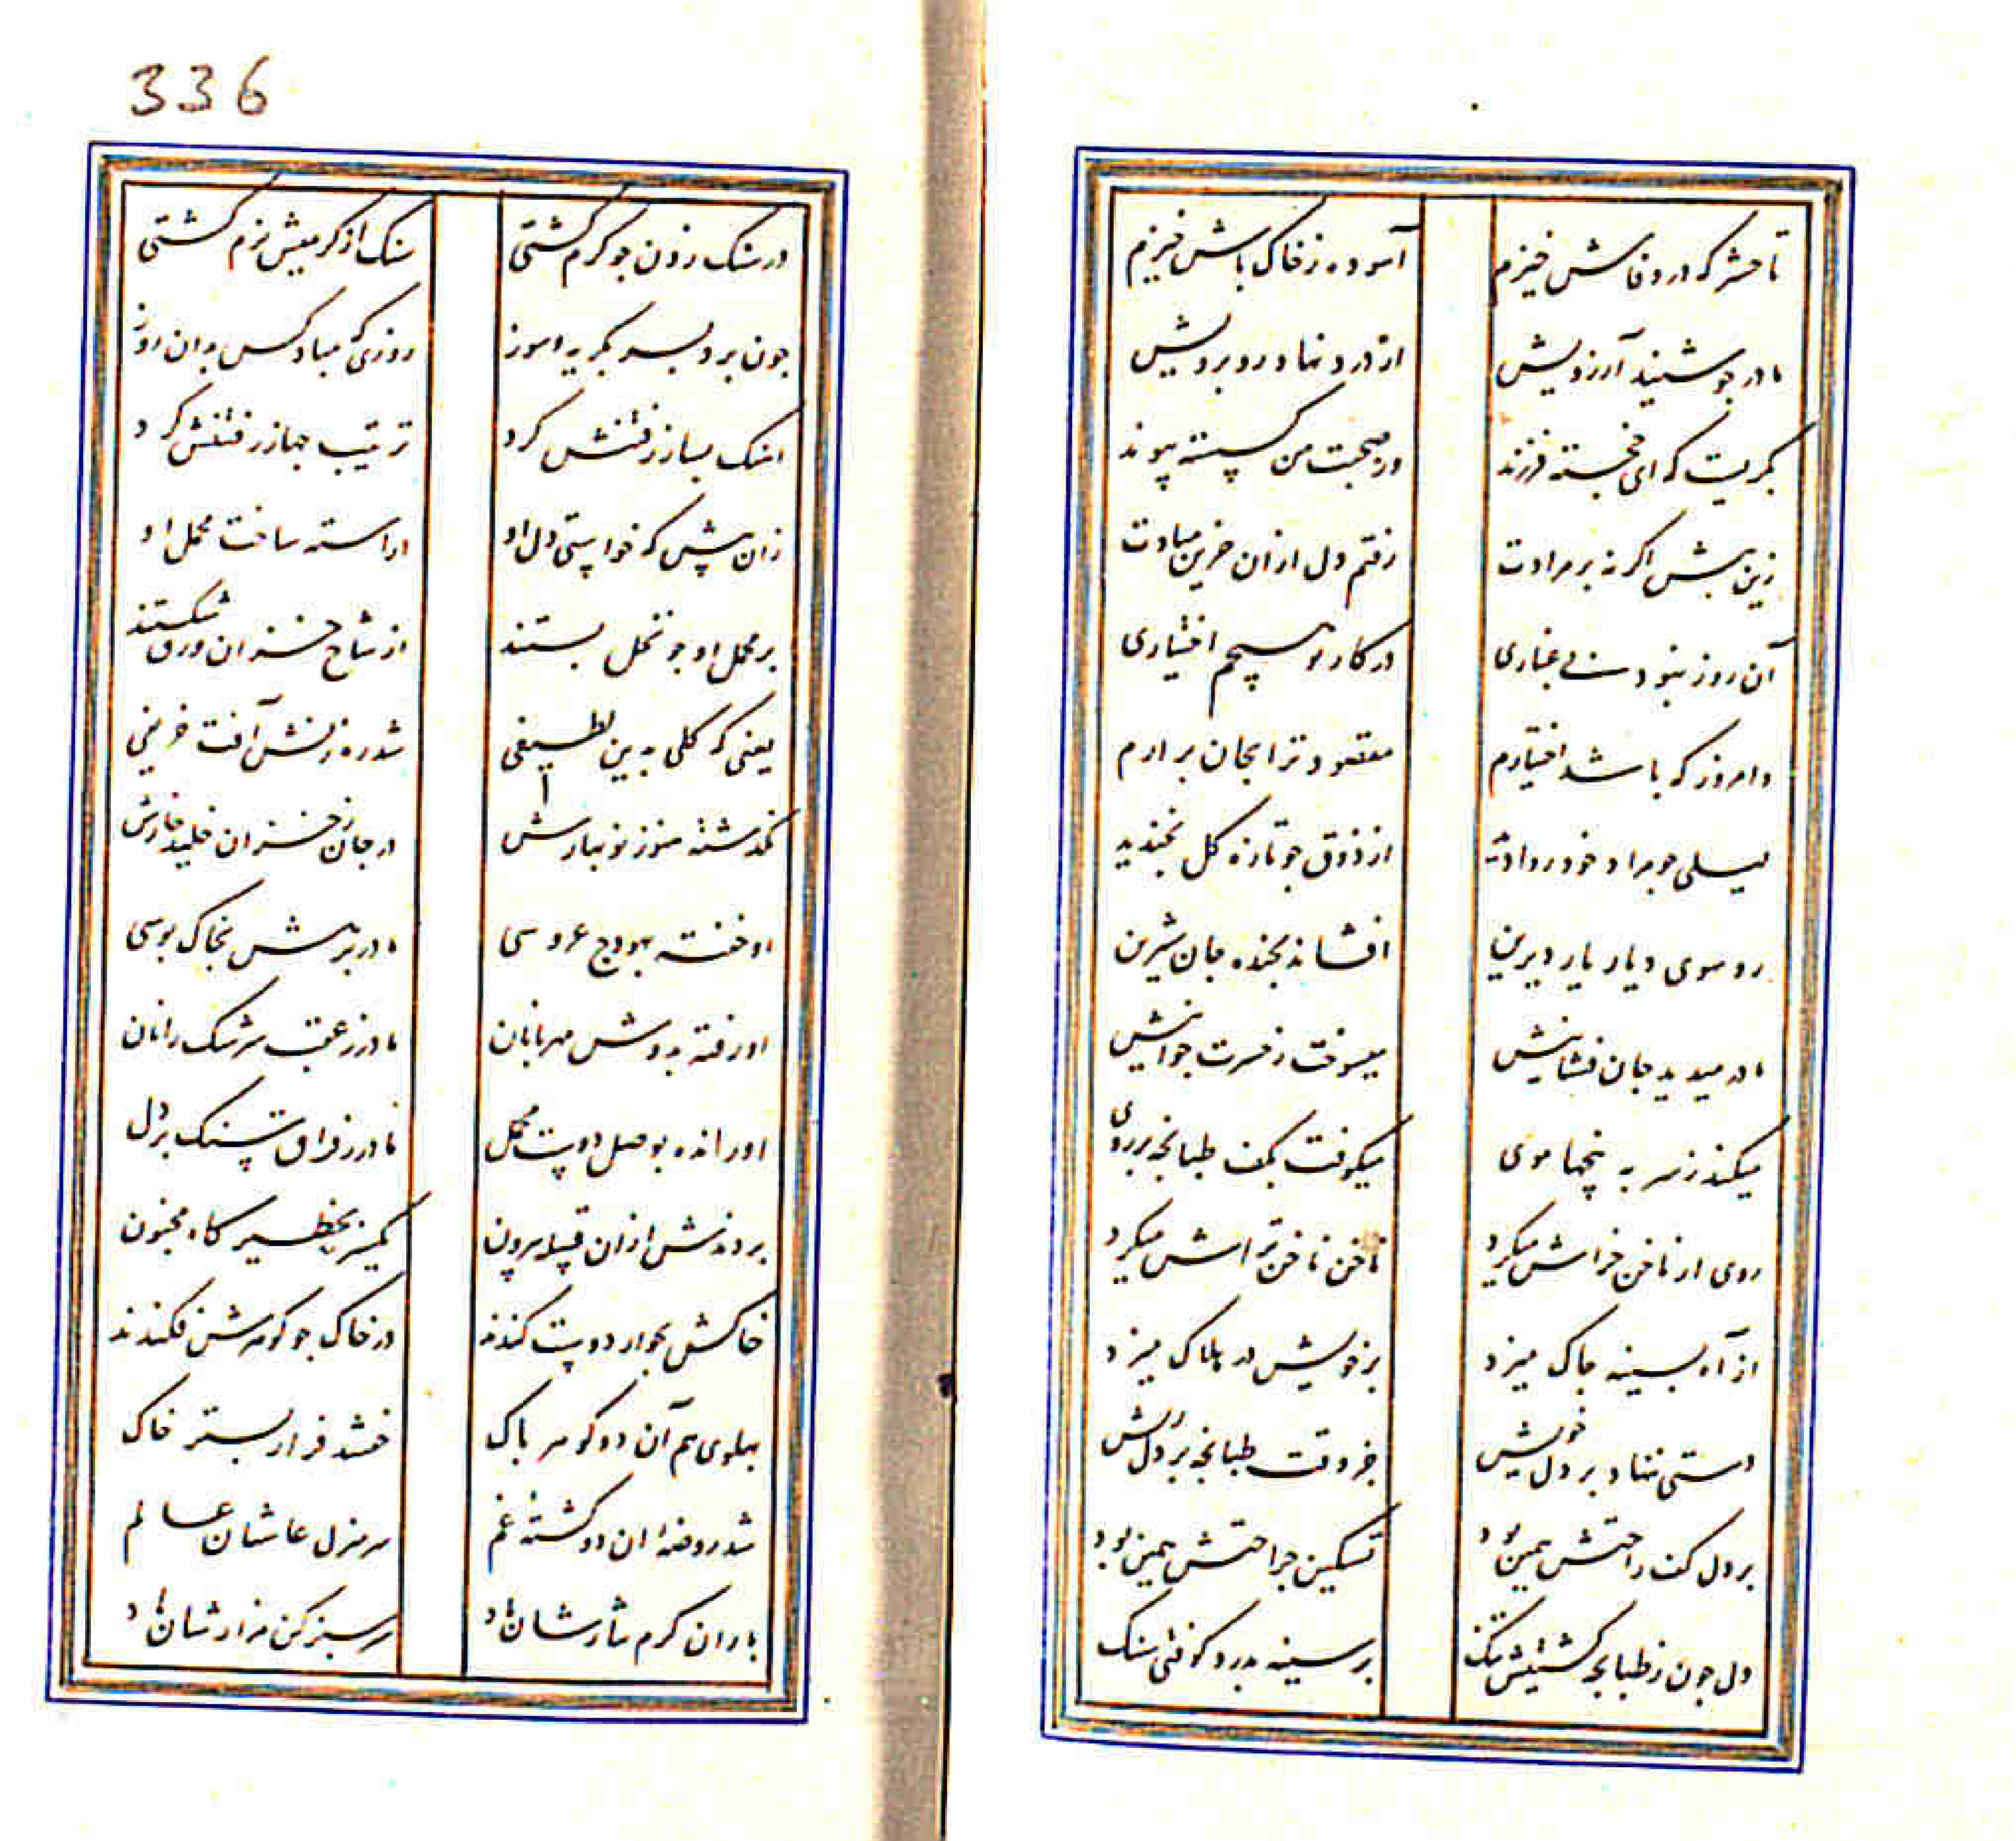 336
تا حشر که در وفاش خیزم آسوده ز خاک پاش خیزم
مادر جو شنید آرزویش از درد نهاد رو برویش
بکریست که ای خجسته فرزند در صحبت من کسسته پیوند
زین پیش اکر نه بر مرادت رفتم دل ازان حزین مبادت
آن روز نبود بی غباری در کار تو هیچم اختیاری
وامروز که باشد اختیارم مقصود ترا بجان برارم
لیلی جو مراد خود روا دید از ذوق جو تازه کل بخندید
رو سوی دیار یار دیرین افشاند بخنده جان شیرین
مادر میدید جان فشانیش میسوخت ز حسرت جوانیش
میکند ز سر به پنجها موی میکوفت بکف طبانجه بر روی
روی از ناخن خراش میکرد ناخن ناخن تراش میکرد
از آه بسینه جاک میزد بر خویش در هلاک میزد
دستی ننهاد بر دل خویش جز وقت طبانجه بر دل ریش
بر دل کف راحتش همین بود تسکین جراحتش همین بود
دل جون ز طبانجه کشتیش تنک بر سینه بدرد کوفتی سنک
در سنک زدن جو کرم کشتی سنک از کرمیش نرم کشتی
جون برد بسر بکریه امروز روزی که مباد کس بدان روز
اشک بساز رفتنش کرد ترتیب جهاز رفتنش کرد
زان پیش که خواستی دل او اراسته ساخت محمل او
بر محمل او جو نخل بستند از شاخ خزان ورق شکستند
یعنی که کلی بدین لطیفی شد رهزنش آفت خریفی
نکذشته هنوز نو بهارش در جان ز خزان خلید خارش
او خفته بهودج عروسی مادر بر رهش بخاک بوسی
او رفته بدوش مهربانان مادر ز عقب سرشک رانان
او رانده بوصل دوست محمل مادر ز فراق سنک بر دل
بردندش ازان قبیله بیرون یکسر بحظیره کاه مجنون
خاکش بجوار دوست کندند در خاک جو کوهرش فکندند
پهلوی هم آن دو کوهر پاک خفتند فراز بستر خاک
شد روضه ان دو کشته غم سر منزل عاشقان عالم
باران کرم نثارشان باد سرسبز کن مزارشان باد